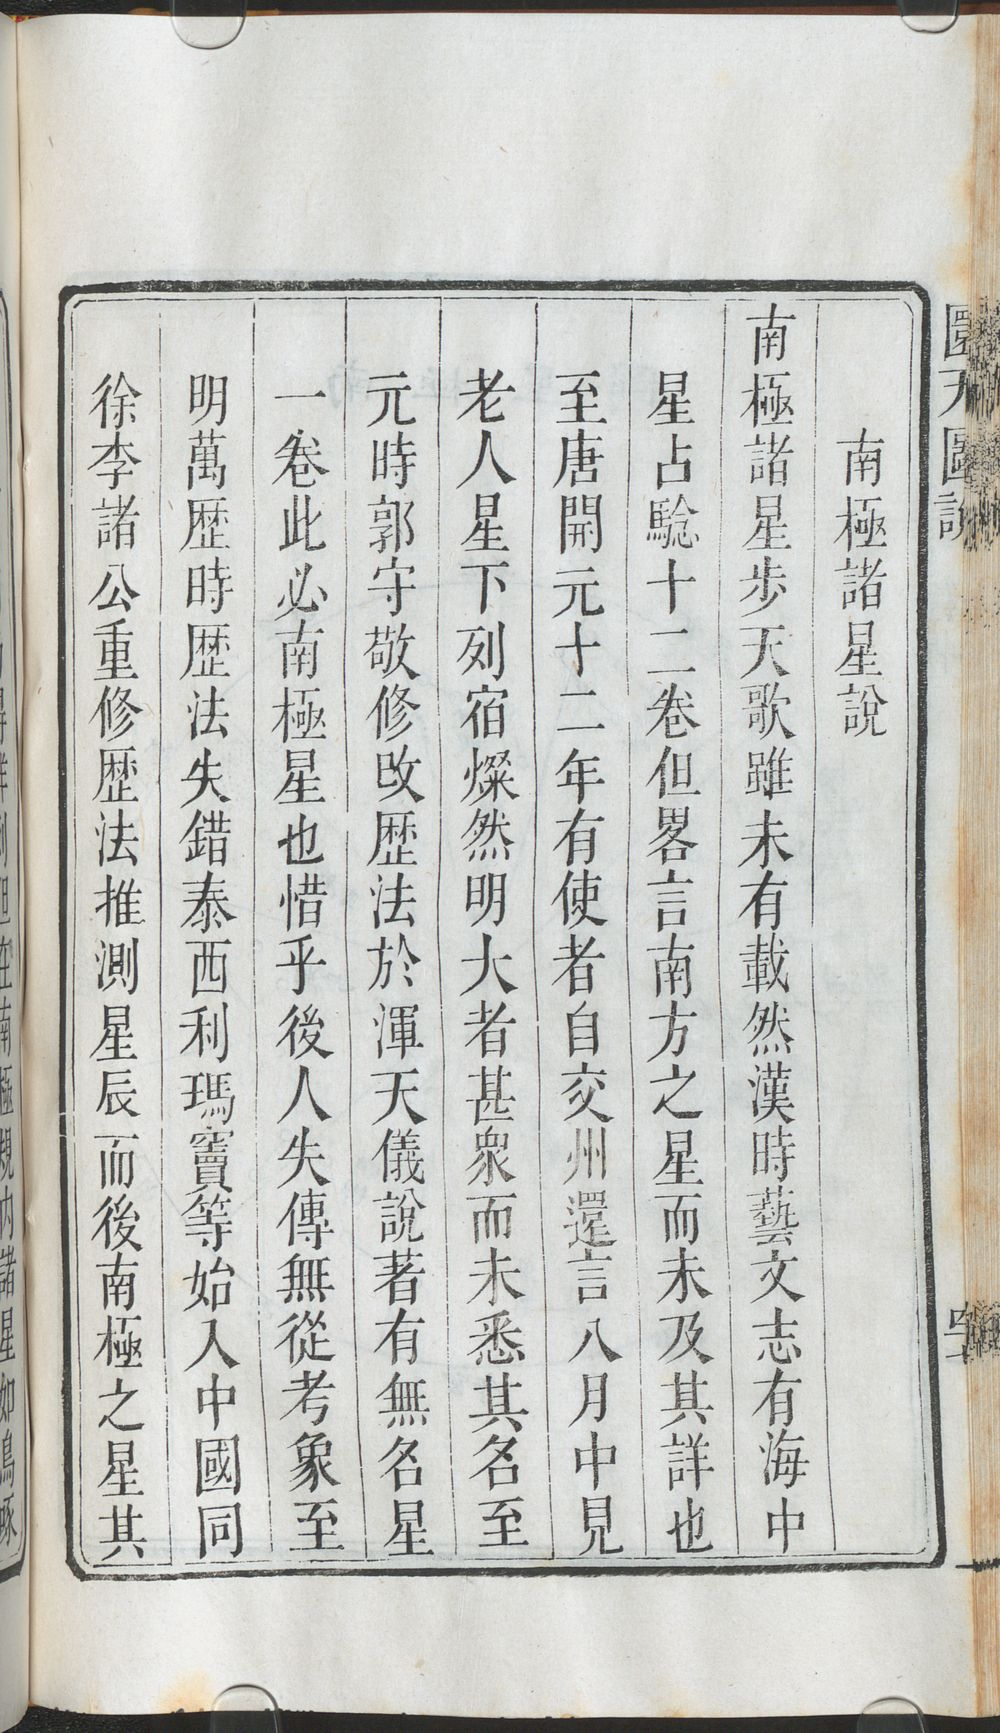 圜天圖說
南極諸星說
南極諸星步天歌雖未有載然漢時藝文志有海中
星占騐十二卷但畧言南方之星而未及其詳也
至唐開元十二年有使者自交州還言八月中見
老人星下列宿燦然明大者甚衆而未悉其名至
元時郭守敬修改歴法於渾天儀說著有無名星
一卷此必南極星也惜乎後人失傳無從考象至
明萬歴時歴法失錯泰西利瑪竇等始入中國同
徐李諸公重修歴法推測星辰而後南極之星其
在南極規內諸星如鳥啄